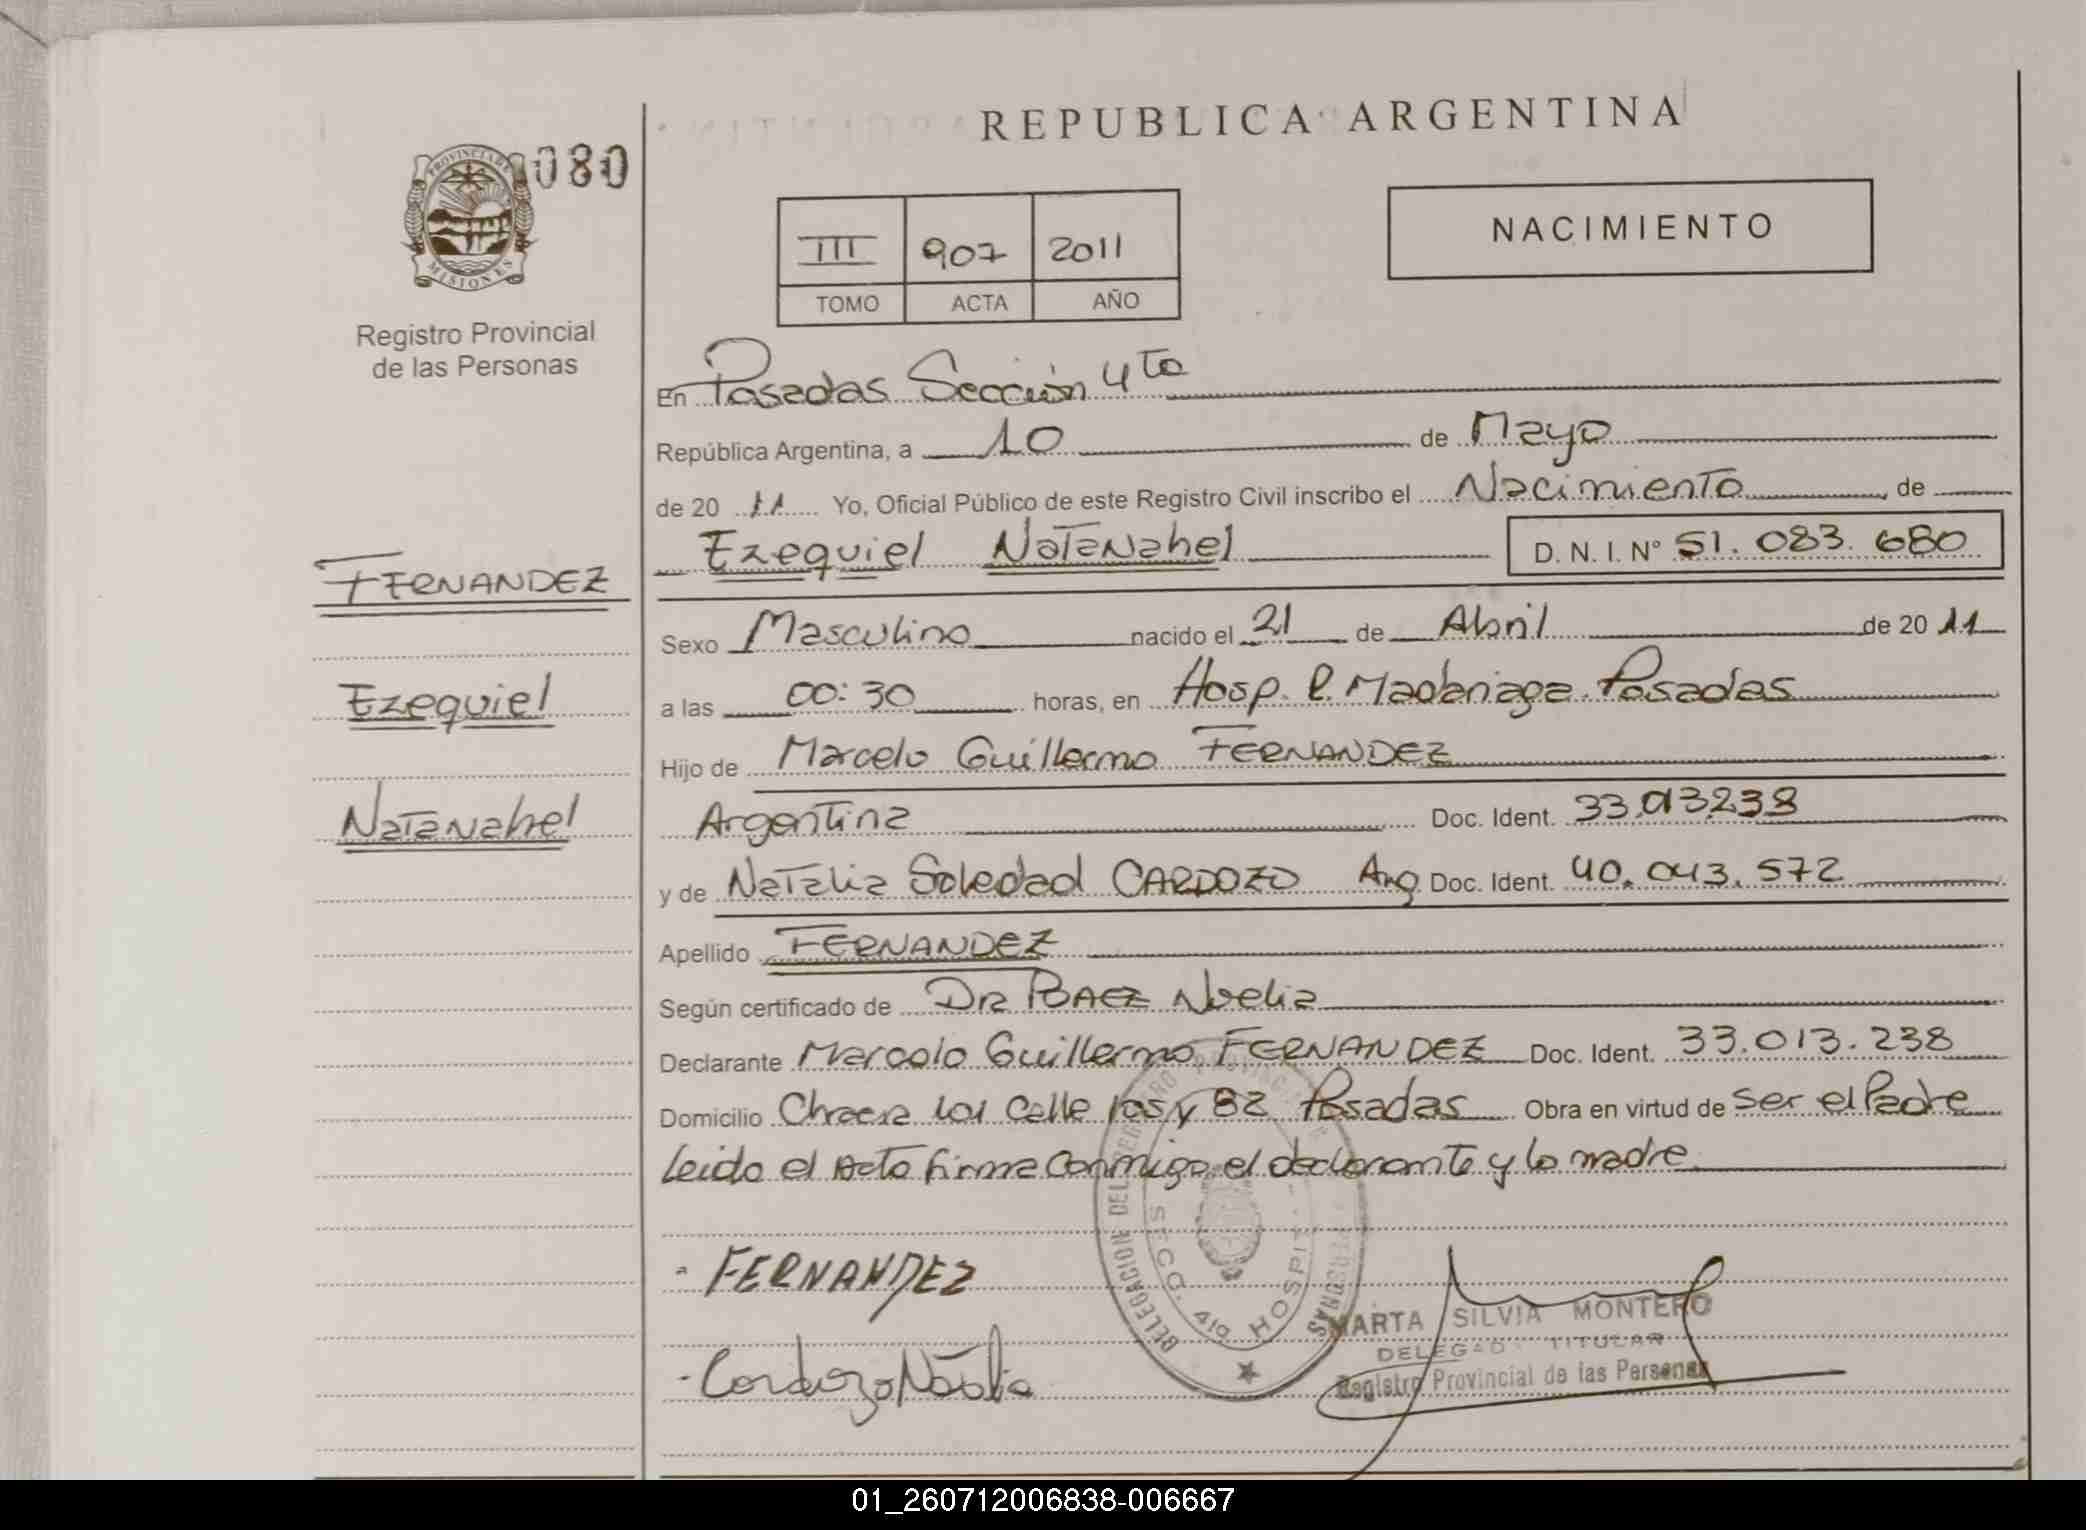 REPUBLICA ARGENTINA
080
PROVINCIA DE
MISIONES
Registro Provincial
de las Personas
NACIMIENTO
III 907 2011
TOMO ACTA AÑO
En Posadas Sección 4to
República Argentina, a 10 de Mayo
de 20 11 Yo, Oficial Público de este Registro Civil inscribo el Nacimiento, de
Ezequiel Natanahel D. N. I. N° 51. 083. 680
FERNANDEZ
Ezequiel
Natanahel
Sexo Masculino nacido el 21 de Abril de 20 11
a las 00:30 horas, en Hosp. R. Madariaga Posadas
Hijo de Marcelo Guillermo FERNANDEZ
Argentina Doc. Ident. 33.013238
y de Natalia Soledad CARDOZO Arg Doc. Ident. 40. 043. 572
Apellido FERNANDEZ
Según certificado de Dra BAEZ Noelia
Declarante Marcelo Guillermo FERNANDEZ Doc. Ident. 33.013.238
Domicilio Chacra 101 Calle 105 y 82 Posadas Obra en virtud de ser el Padre
Leido el Acta firma conmigo el declarante y la madre
- FERNANDEZ
- Cardozo Natalia
DELEGACION DEL REGISTRO PROVINCIAL PERSONAS
SECC. 4ta HOSPI
MARTA SILVIA MONTERO
DELEGADO TITULAR
Registro Provincial de las Personas
01_260712006838-006667